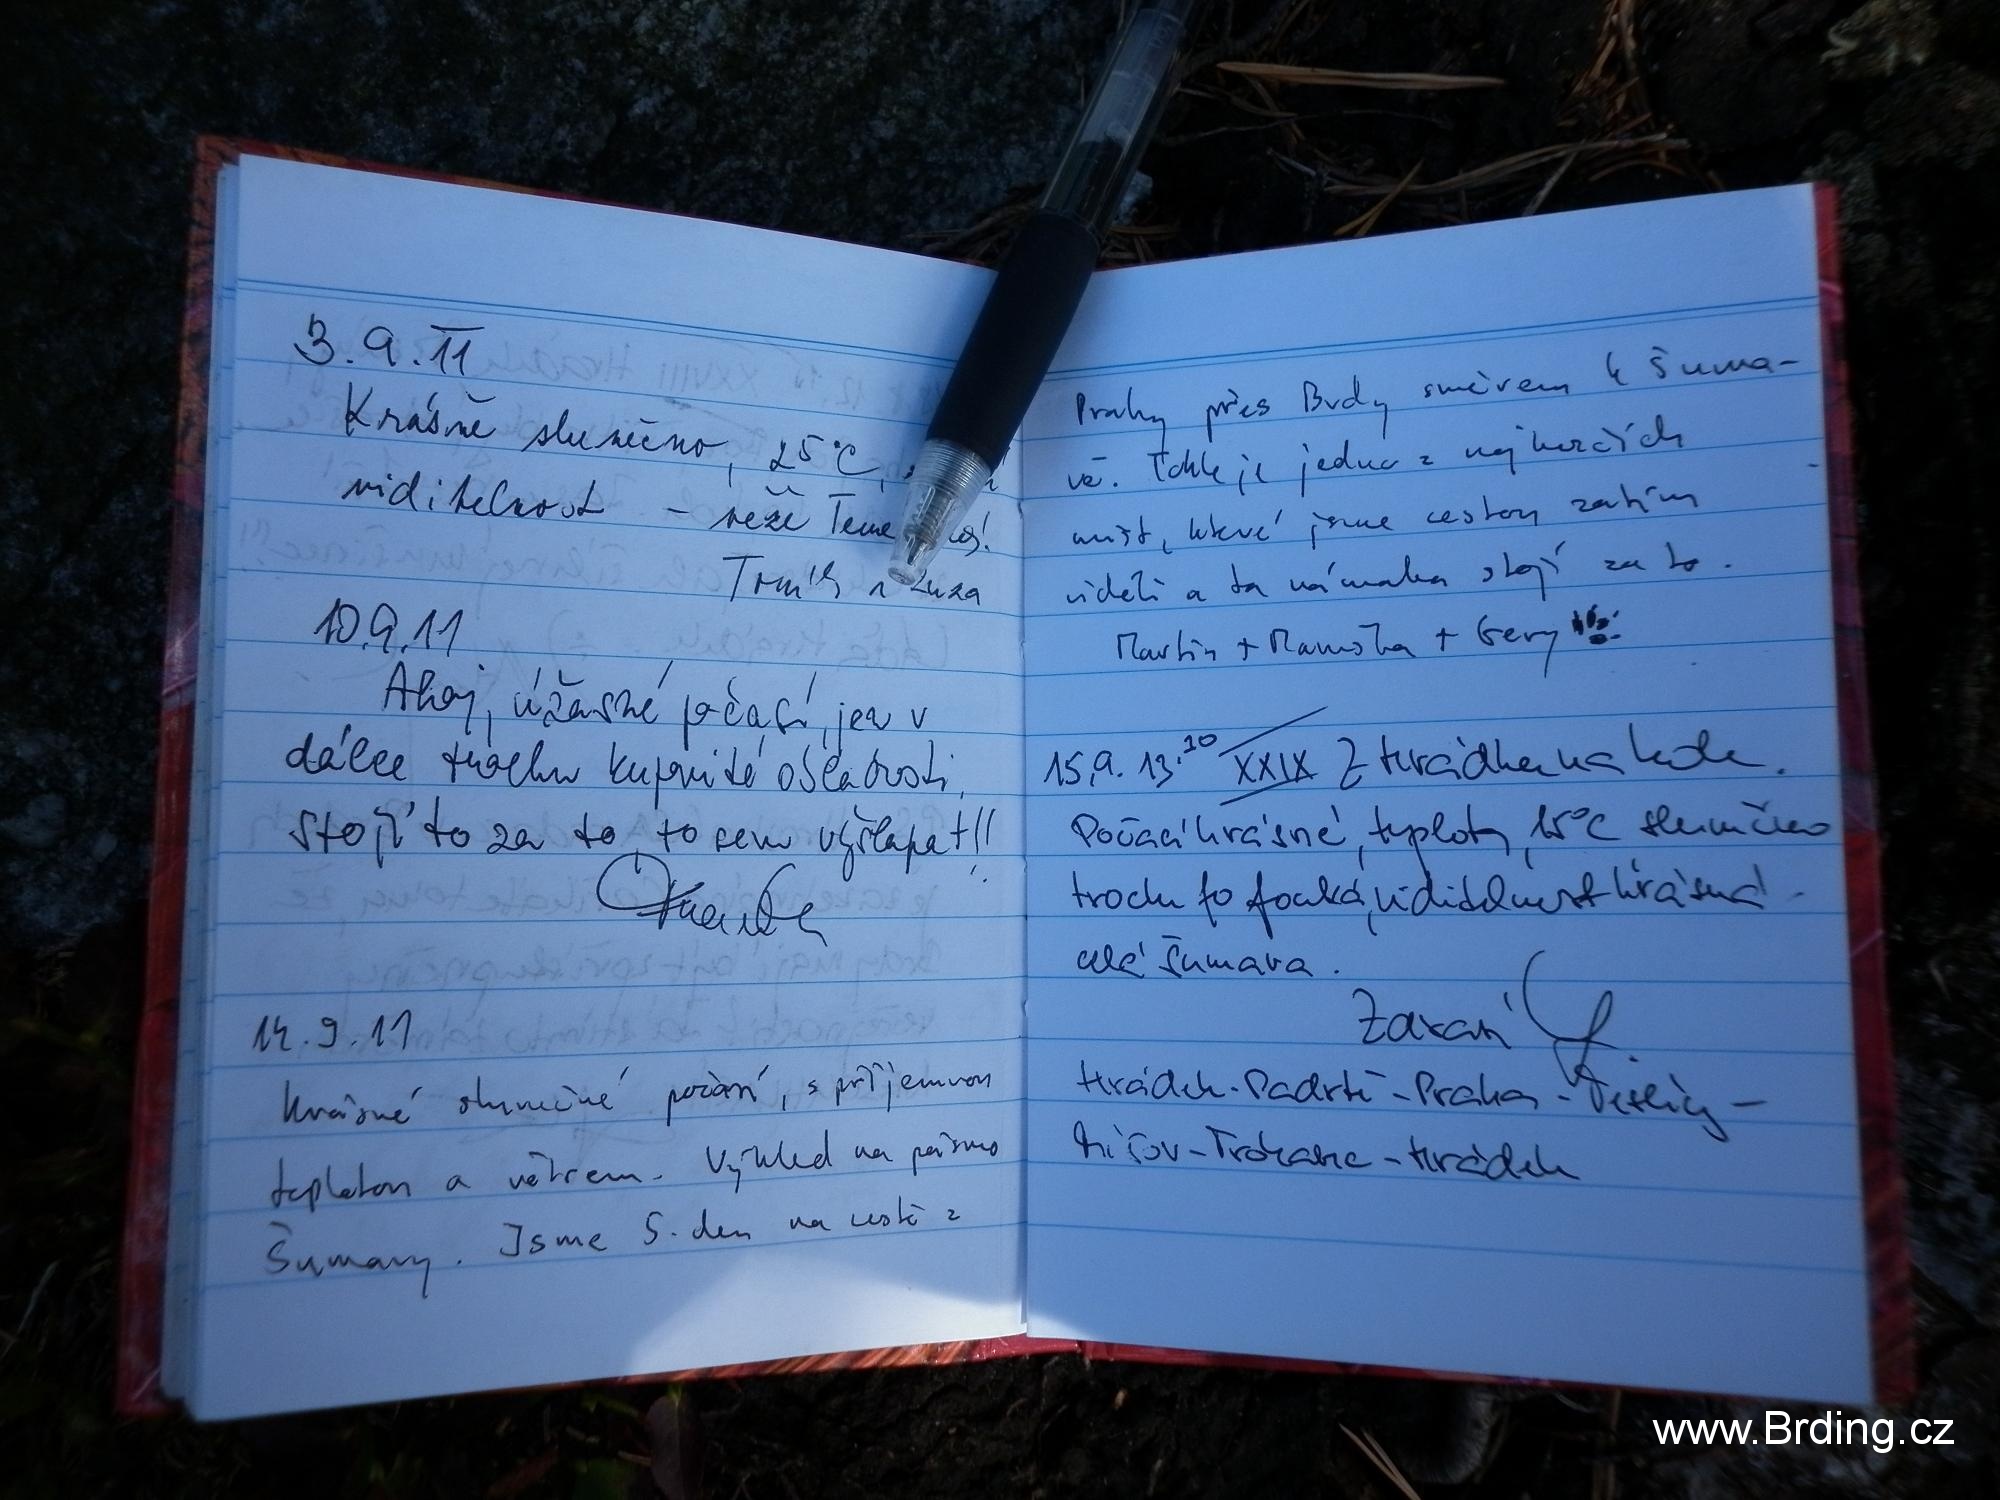 3.9.11
Krásně slunečno, 25°C,
viditelnost - věže
Tomík a Zuza
10.9.11
Ahoj, úžasné počasí, jen v
dálce trochu kupovité oblačnosti,
stojí to za to, to sem vyšlapat!!
14.9.11
Krásné slunečné počasí, s příjemnou
teplotou a větrem. Výhled na pásmo
Šumavy. Jsme 5. den na cestě z
Prahy přes Brdy směrem k Šuma-
vě. Tohle je jedno z nejhezčích
míst, které jsme cestou zatím
viděli a ta námaha stojí za to.
Martin + Maruška + Gery
15.9. 13.10 XXIX Z Hrádku na kole.
Počasí krásné, teploty, 15°C sluníčko
trochu to fouká, viditelnost krásná
celá Šumava.
Hrádek - Padrtě - Praha - Teslíny -
Míšov - Trokavec - Hrádek
www.Brding.cz